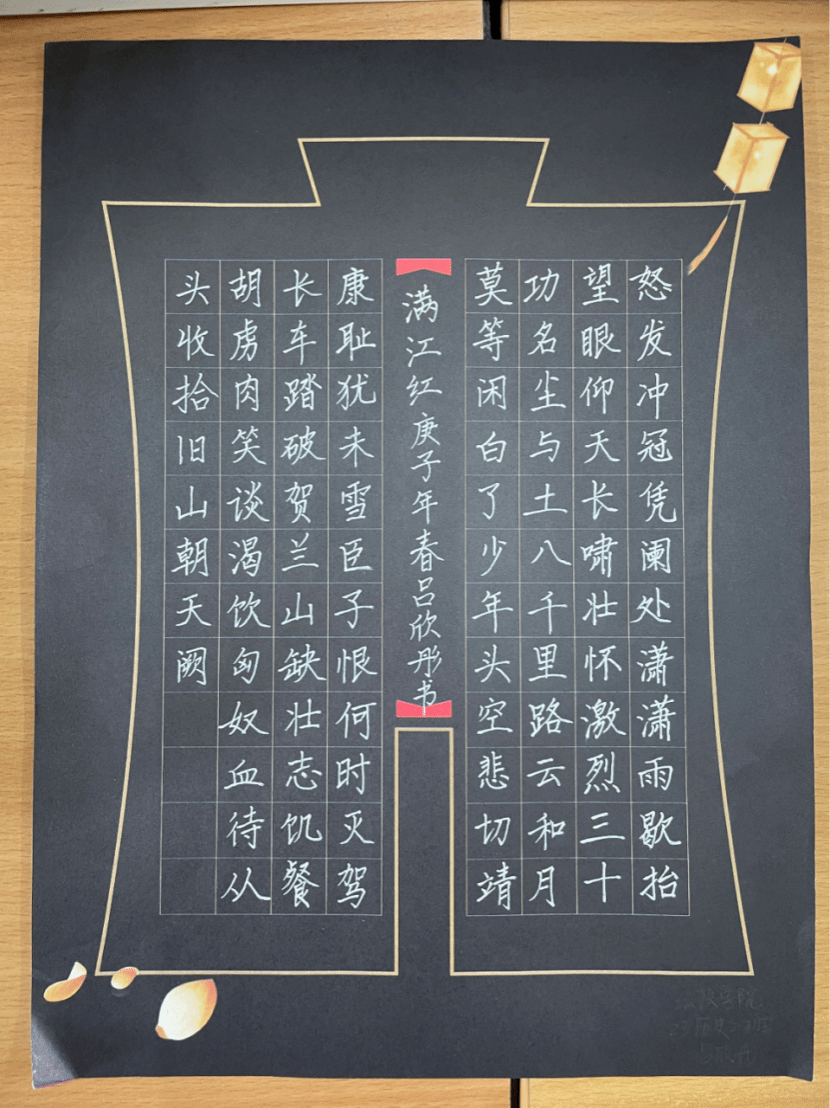 怒发冲冠凭阑处潇潇雨歇抬
望眼仰天长啸壮怀激烈三十
功名尘与土八千里路云和月
莫等闲白了少年头空悲切靖
满江红庚子年春吕欣彤书
康耻犹未雪臣子恨何时灭驾
长车踏破贺兰山缺壮志饥餐
胡虏肉笑谈渴饮匈奴血待从
头收拾旧山朝天阙